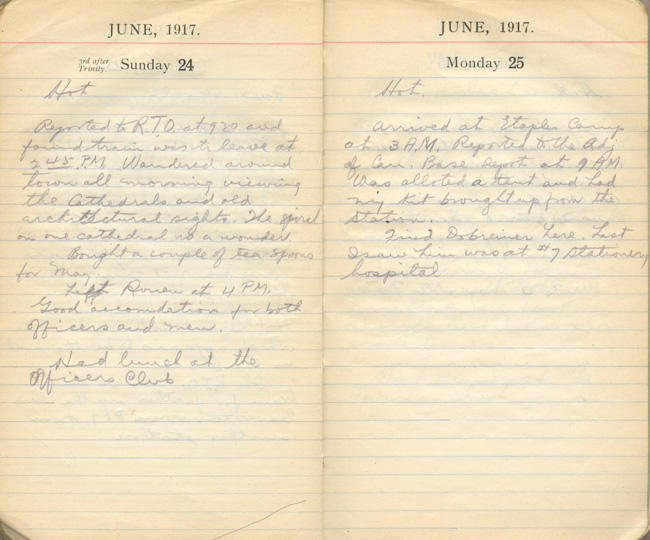 JUNE, 1917.
3rd after Trinity. Sunday 24
Hot
Reported to R.T.O. at 920 and
found train was to leave at
2 45 PM. Wandered around
town all morning viewing
the Cathedrals and old
architectural sights. The spiral
on one cathedral is a wonder
Bought a couple of tea spoons
for May.
Left Rouen at 4 PM.
Good accomodation for both
officers and men.
Had lunch at the
Officers Club
JUNE, 1917.
Monday 25
Hot.
Arrived at Etaples Camp
at 3 A.M. Reported to the Adj
of Can. Base Depot at 9 AM.
Was alloted a tent and had
my kit brought up from the
station.
Find Dobreiner here. Last
I saw him was at #7 Stationery
hospital